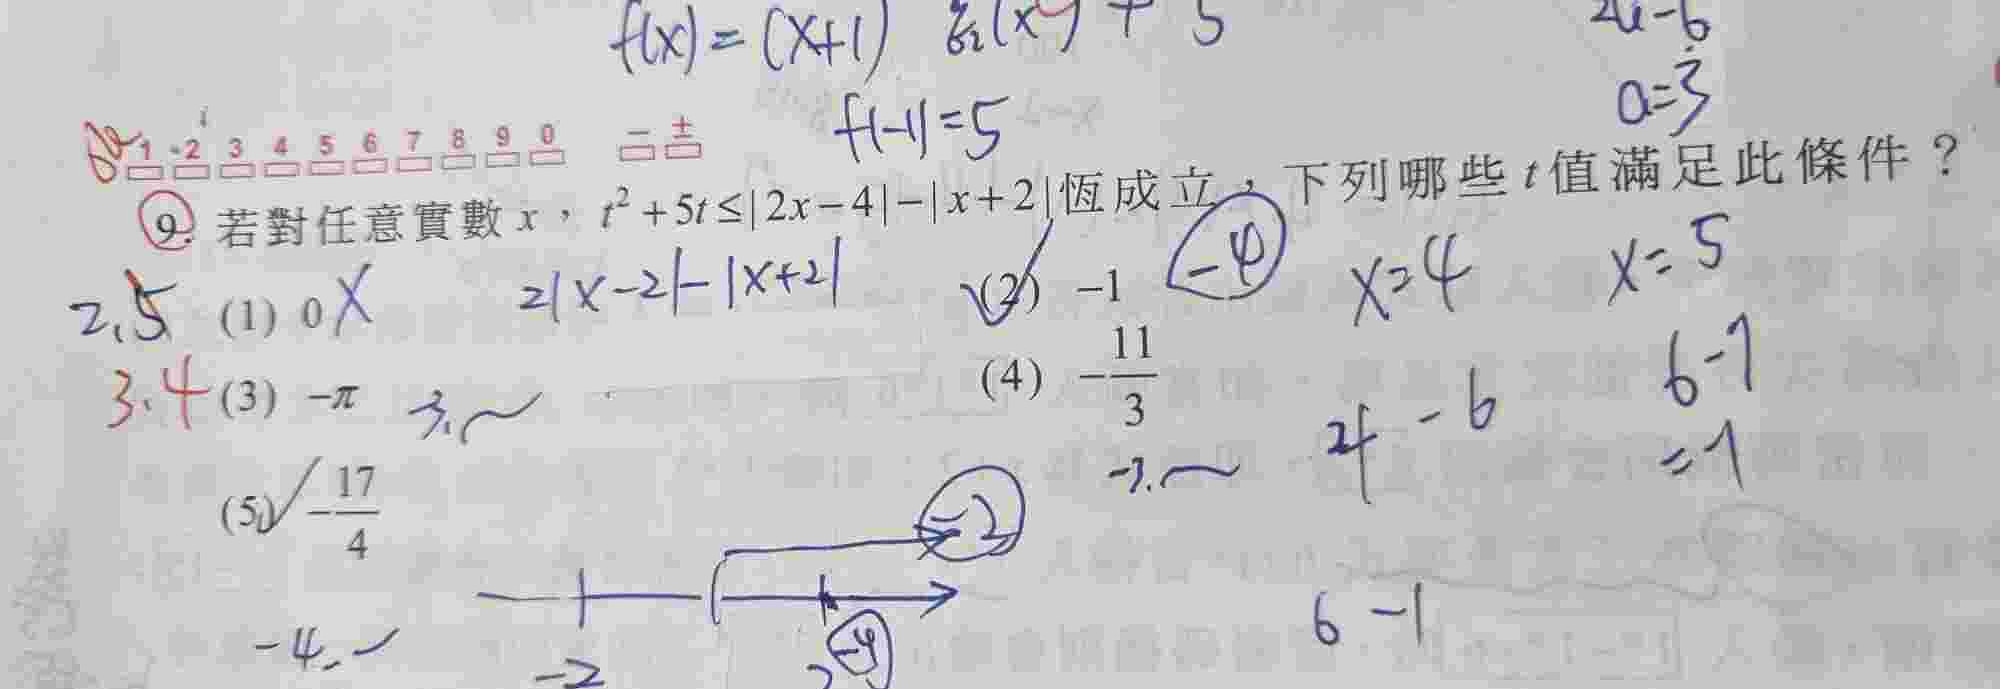 f(x) = (x+1) g₂(x) + 5
f(-1) = 5
a=3
1 2 3 4 5 6 7 8 9 0 − ±
9. 若對任意實數 x，t² + 5t ≤ | 2x − 4 | − | x + 2 | 恆成立，下列哪些 t 值滿足此條件？
-4 x=4 x=5
2.5 (1) 0 X 2|x-2|-|x+2| (2) −1
6-7
=-1
3.4 (3) −π -3.~ (4) −11/3
4-6
-3.~
(5) −17/4
-4.~
-2
-2 2 -4
6-1